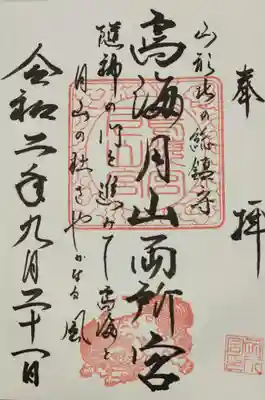 奉拝
山形北の総鎮守
鳥海月山両所宮
随神の門を進みて鳥海と
月山の秋さやかなる風
令和二年九月二十一日